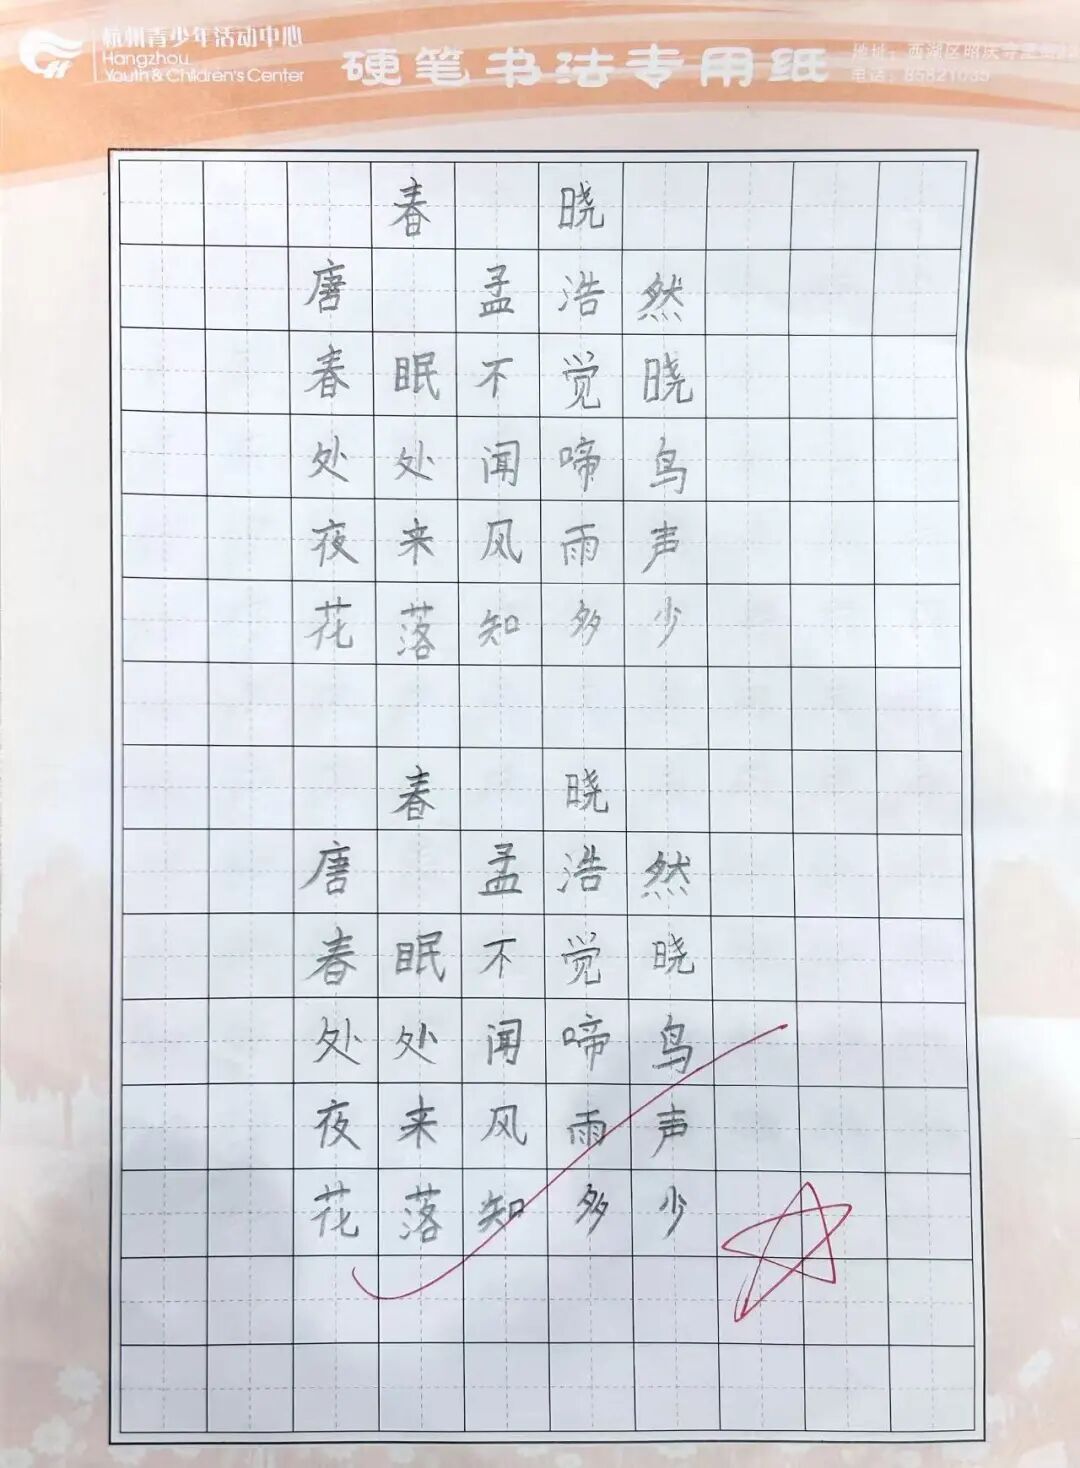 杭州青少年活动中心
Hangzhou
Youth & Children's Center
硬笔书法专用纸
电话：85821035
春 晓
唐 孟浩然
春眠不觉晓
处处闻啼鸟
夜来风雨声
花落知多少
春 晓
唐 孟浩然
春眠不觉晓
处处闻啼鸟
夜来风雨声
花落知多少